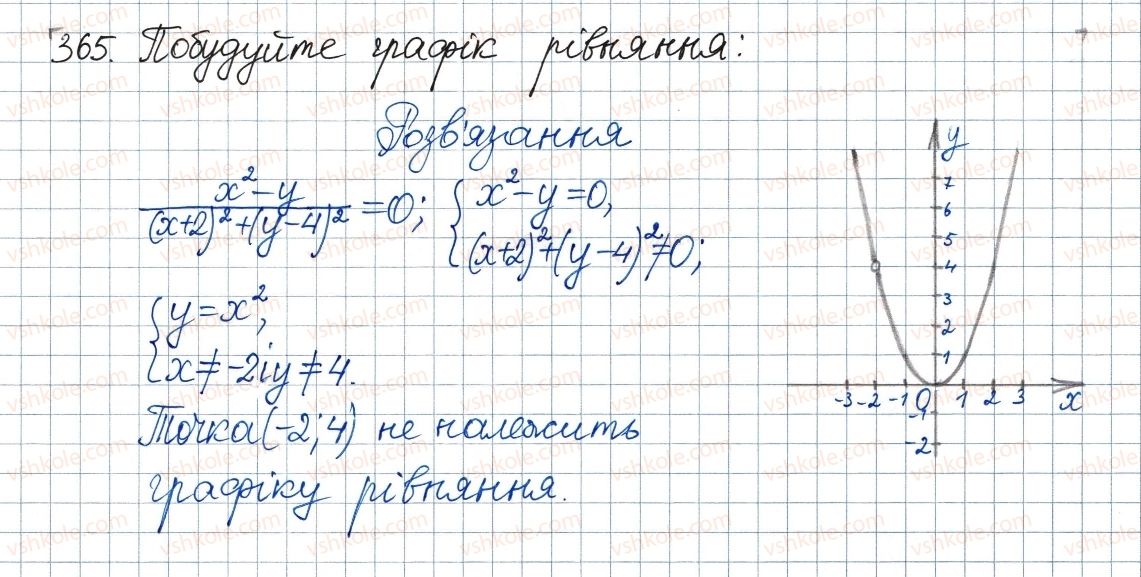 365. Побудуйте графік рівняння:
Розв'язання
x²-y / (x+2)²+(y-4)² = 0; { x²-y=0,
(x+2)²+(y-4)²≠0;
{ y=x²,
x≠-2 і y≠4.
Точка (-2; 4) не належить
графіку рівняння.
y
7
6
5
4
3
2
1
-3 -2 -1 0 1 2 3 x
-1
-2
vshkole.com